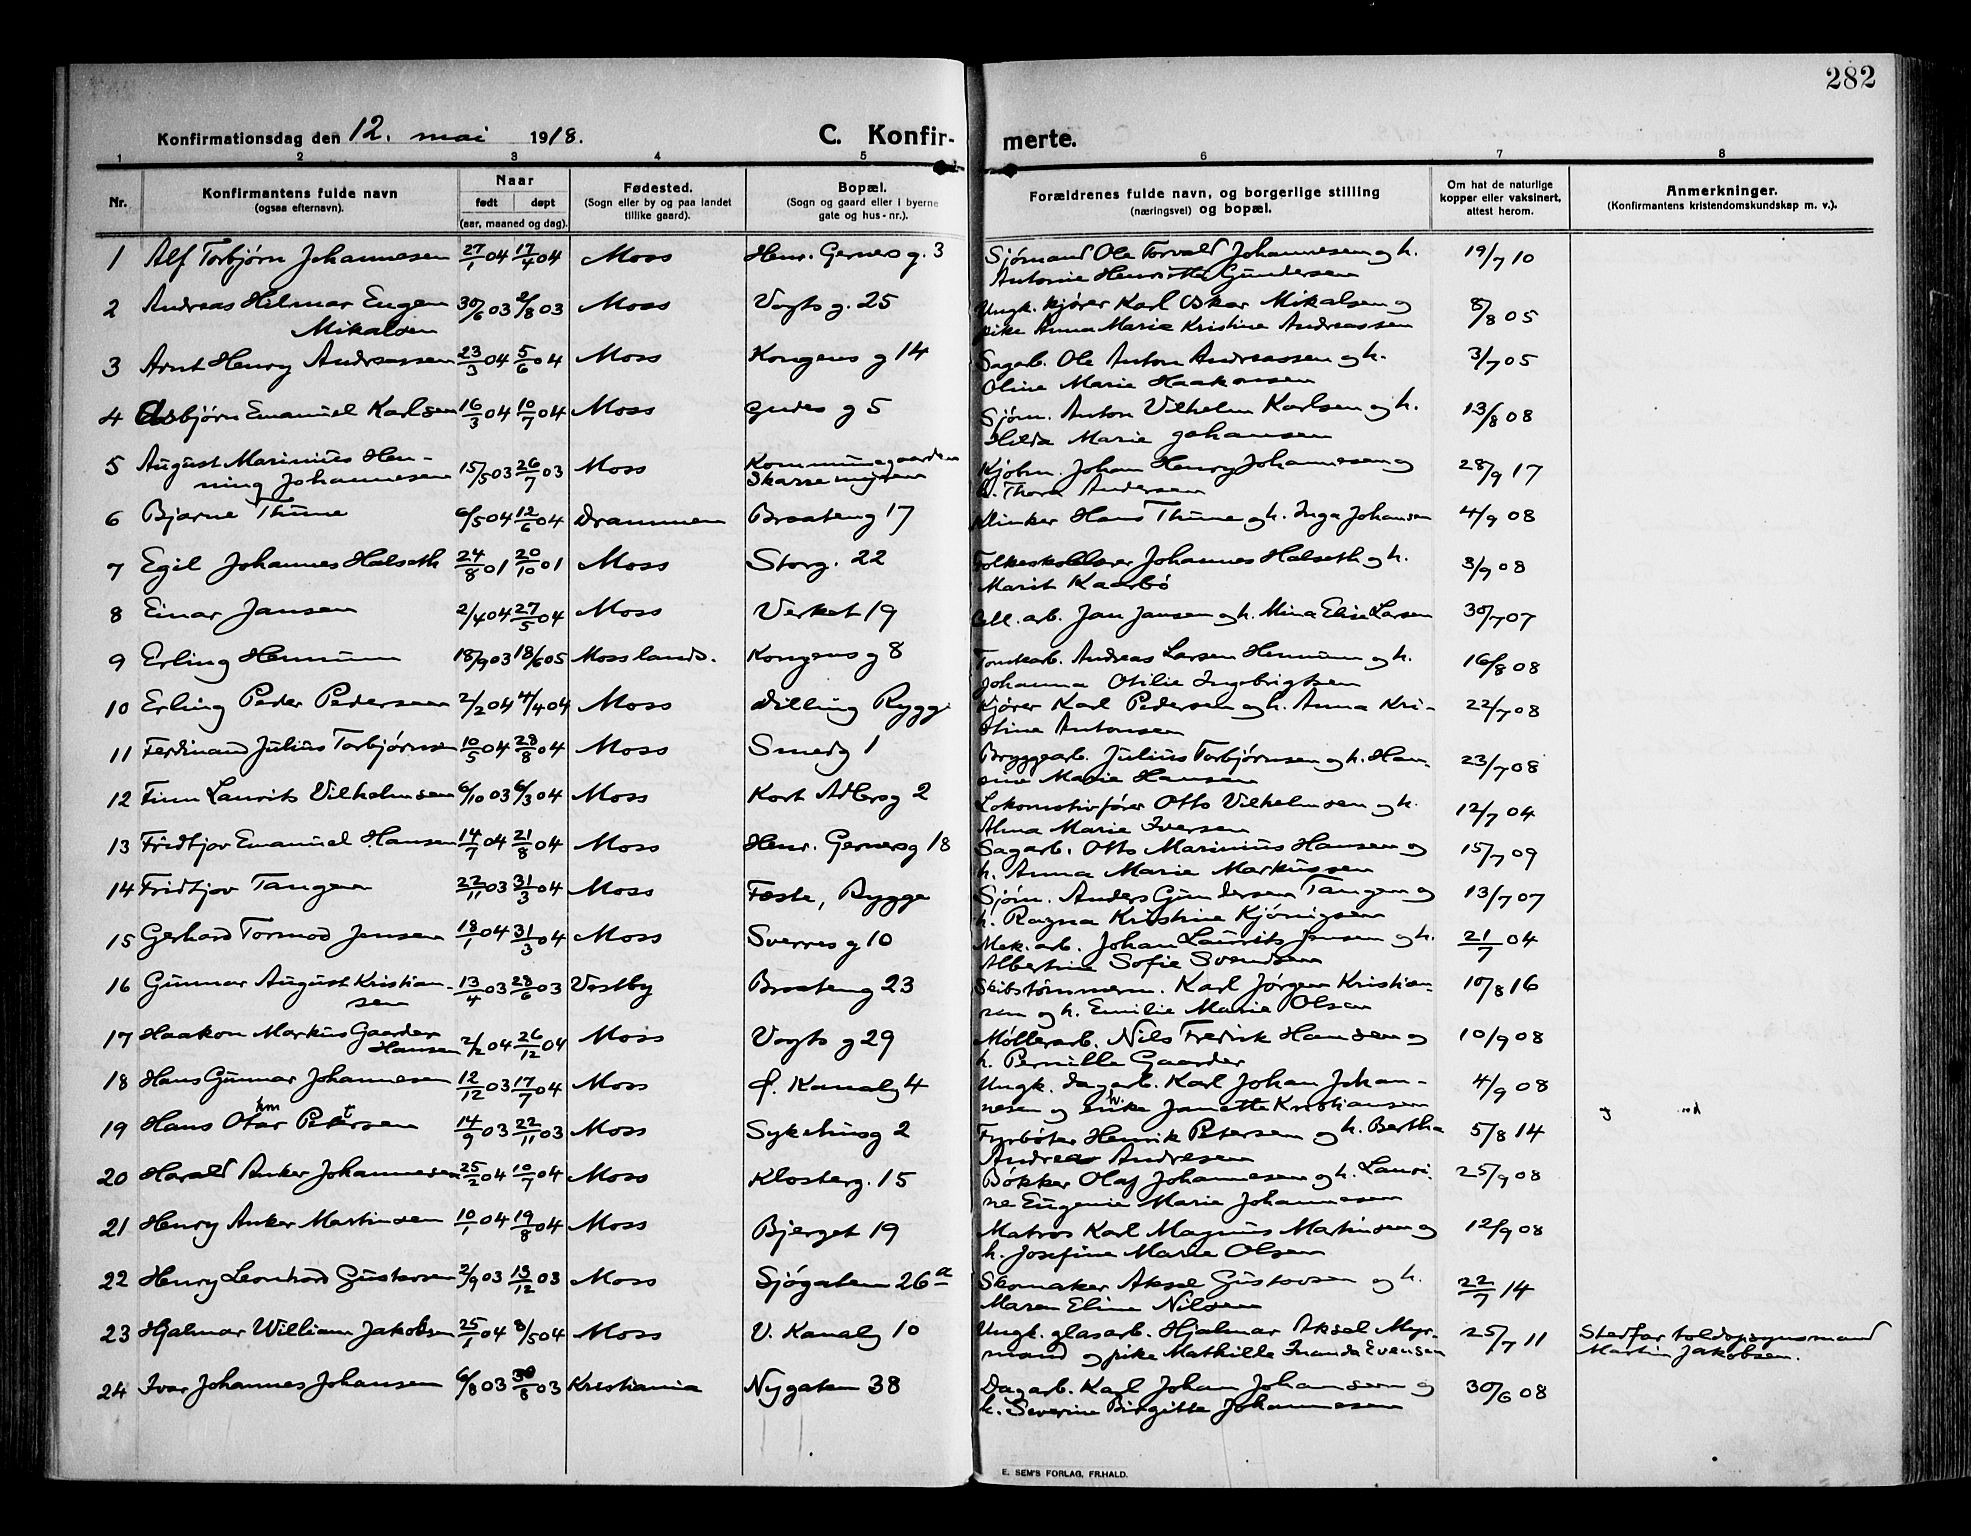 282
Konfirmationsdag den 12. mai 1918. C. Konfirmerte.
1 2 3 4 5 6 7 8
Nr. | Konfirmantens fulde navn (ogsaa efternavn). | Naar født døpt (aar, maaned og dag). | Fødested. (Sogn eller by og paa landet tillike gaard). | Bopæl. (Sogn og gaard eller i byerne gate og hus-nr.). | Forældrenes fulde navn, og borgerlige stilling (næringsvei) og bopæl. | Om hat de naturlige kopper eller vaksinert, attest herom. | Anmerkninger. (Konfirmantens kristendomskundskap m. v.).
1 Alf Torbjørn Johannesen 27/1 04 17/4 04 Moss Henr. Gerners g. 3 Sjømand Ole Torvald Johannesen og h. 19/7 10
Antonie Henriette Gundersen
2 Andreas Hilmar Eugen 30/6 03 2/8 03 Moss Vogts g. 25 Ungk. kjører Karl Oskar Mikalsen og 8/8 05
Mikalsen pike Anna Marie Kristine Andreassen
3 Arnt Henry Andreassen 23/3 04 5/6 04 Moss Kongens g 14 Sagarb. Ole Anton Andreassen og h. 3/7 05
Oline Marie Haakonsen
4 Asbjørn Emanuel Karlsen 16/3 04 10/7 04 Moss Gudes g 5 Sjøm. Anton Vilhelm Karlsen og h. 13/8 08
Hilda Marie Johansen
5 August Marinius Hen- 15/5 03 26/7 03 Moss Kommunegaarden Kjøbm. Johan Henry Johannesen og 28/9 17
ning Johannesen Skarmyren Thora Andersen
6 Bjarne Thune 6/5 04 12/6 04 Drammen Braateng 17 Klinker Hans Thune og h. Inga Johansen 4/9 08
7 Egil Johannes Halseth 24/8 01 20/10 01 Moss Storg. 22 Folkeskolelærer Johannes Halseth og h. 3/9 08
Marit Kaarbø
8 Einar Jansen 2/4 04 27/5 04 Moss Verket 19 Cell. arb. Jan Jansen og h. Mina Elise Larsen 30/7 07
9 Erling Hennum 18/9 03 18/6 05 Moss lands. Kongens g 8 Tomtearb. Andreas Larsen Hennum og h. 16/8 08
Johanna Otilie Ingebrigtsen
10 Erling Peder Pedersen 2/2 04 4/4 04 Moss Dilling Rygge Kjører Karl Pedersen og h. Anna Kri- 22/7 08
stine Antonsen
11 Ferdinand Julius Torbjørnsen 10/5 04 28/8 04 Moss Smedg 1 Bryggearb. Julius Torbjørnsen og h. Han- 23/7 08
sine Marie Hansen
12 Finn Laurits Vilhelmsen 6/10 03 6/3 04 Moss Kort Adlersg 2 Lokomotivfører Otto Vilhelmsen og h. 12/7 04
Alma Marie Iversen
13 Fridtjov Emanuel Hansen 14/7 04 21/8 04 Moss Henr. Gernersg 18 Sagarb. Otto Marinius Hansen og 15/7 09
h. Anna Marie Markussen
14 Fridtjov Tangen 22/11 03 31/3 04 Moss Feste, Rygge Sjøm. Anders Gundersen Tangen og 13/7 07
h. Ragna Kristine Kjønigsen
15 Gerhard Tormod Jensen 18/1 04 31/3 04 Moss Sverres g 10 Mek. arb. Johan Laurits Jensen og h. 21/7 04
Albertine Sofie Svendsen
16 Gunnar August Kristian- 13/4 03 28/6 03 Vestby Braateng 23 Skibstømmerm. Karl Jørgen Kristian- 10/8 16
sen sen og h. Emilie Marie Olsen
17 Haakon Markus Gaarder 2/2 04 26/12 04 Moss Vogts g 29 Møllerarb. Nils Fredrik Hansen og 10/9 08
Hansen h. Pernille Gaarder
18 Hans Gunnar Johannesen 12/12 03 17/7 04 Moss Kanalg 4 Ungk. dagarb. Karl Johan Johan- 4/9 08
nesen og h. Janette Kristiansen
19 Hans Otar Petersen 14/9 03 22/11 03 Moss Sykehusg 2 Fyrbøter Henrik Petersen og h. Bertha 5/8 14
Andrea Andresen
20 Harald Anker Johannesen 25/2 04 10/7 04 Moss Klosterg. 15 Bøkker Olaf Johannesen og h. Lauri- 25/9 08
ne Eugenie Marie Johannesen
21 Henry Anker Martinsen 10/1 04 19/8 04 Moss Bjerget 19 Matros Karl Magnus Martinsen og 12/9 08
h. Josefine Marie Olsen
22 Henry Leonhard Gustavsen 2/9 03 13/12 03 Moss Sjøgaten 26a Skomaker Aksel Gustavsen og h. 22/7 14
Maren Eline Nilsen
23 Hjalmar William Jakobsen 25/1 04 8/5 04 Moss V. Kanalg 10 Ungk. glasarb. Hjalmar Aksel Myr- 25/7 11 Stedfar toldopsynsmand
mand og pike Mathilde Evensen Martin Jakobsen.
24 Ivar Johannes Johansen 6/8 03 30/8 03 Kristiania Nygaten 38 Dagarb. Karl Johan Johansen og 30/6 08
h. Severine Birgitte Johannesen
E. SEM'S FORLAG, FR.HALD.